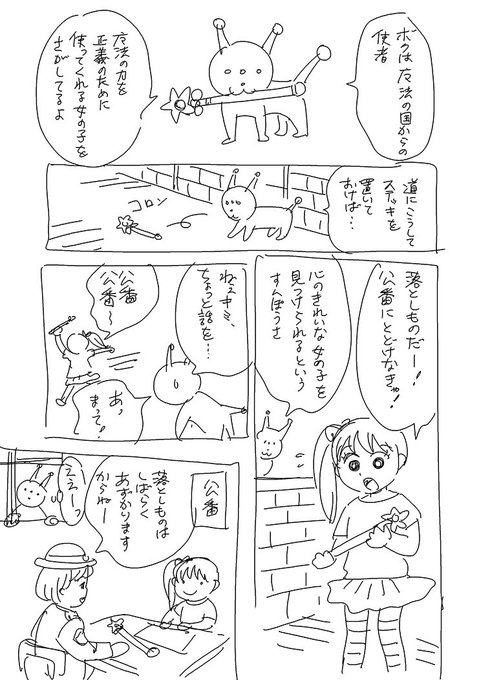 ボクは魔法の国からの
使者
魔法の力を
正義のために
使ってくれる女の子を
さがしてるよ
道にこうして
ステッキを
置いて
おけば…
コロン
落としものだー!
公番にとどけなきゃ!
心のきれいな女の子を
見つけられるという
すんぽうさ
ねえキミ、
ちょっと話を…
公番
公番〜
あっ
まって!
公番
落としものは
しばらく
あずかります
からねー
ええーっ